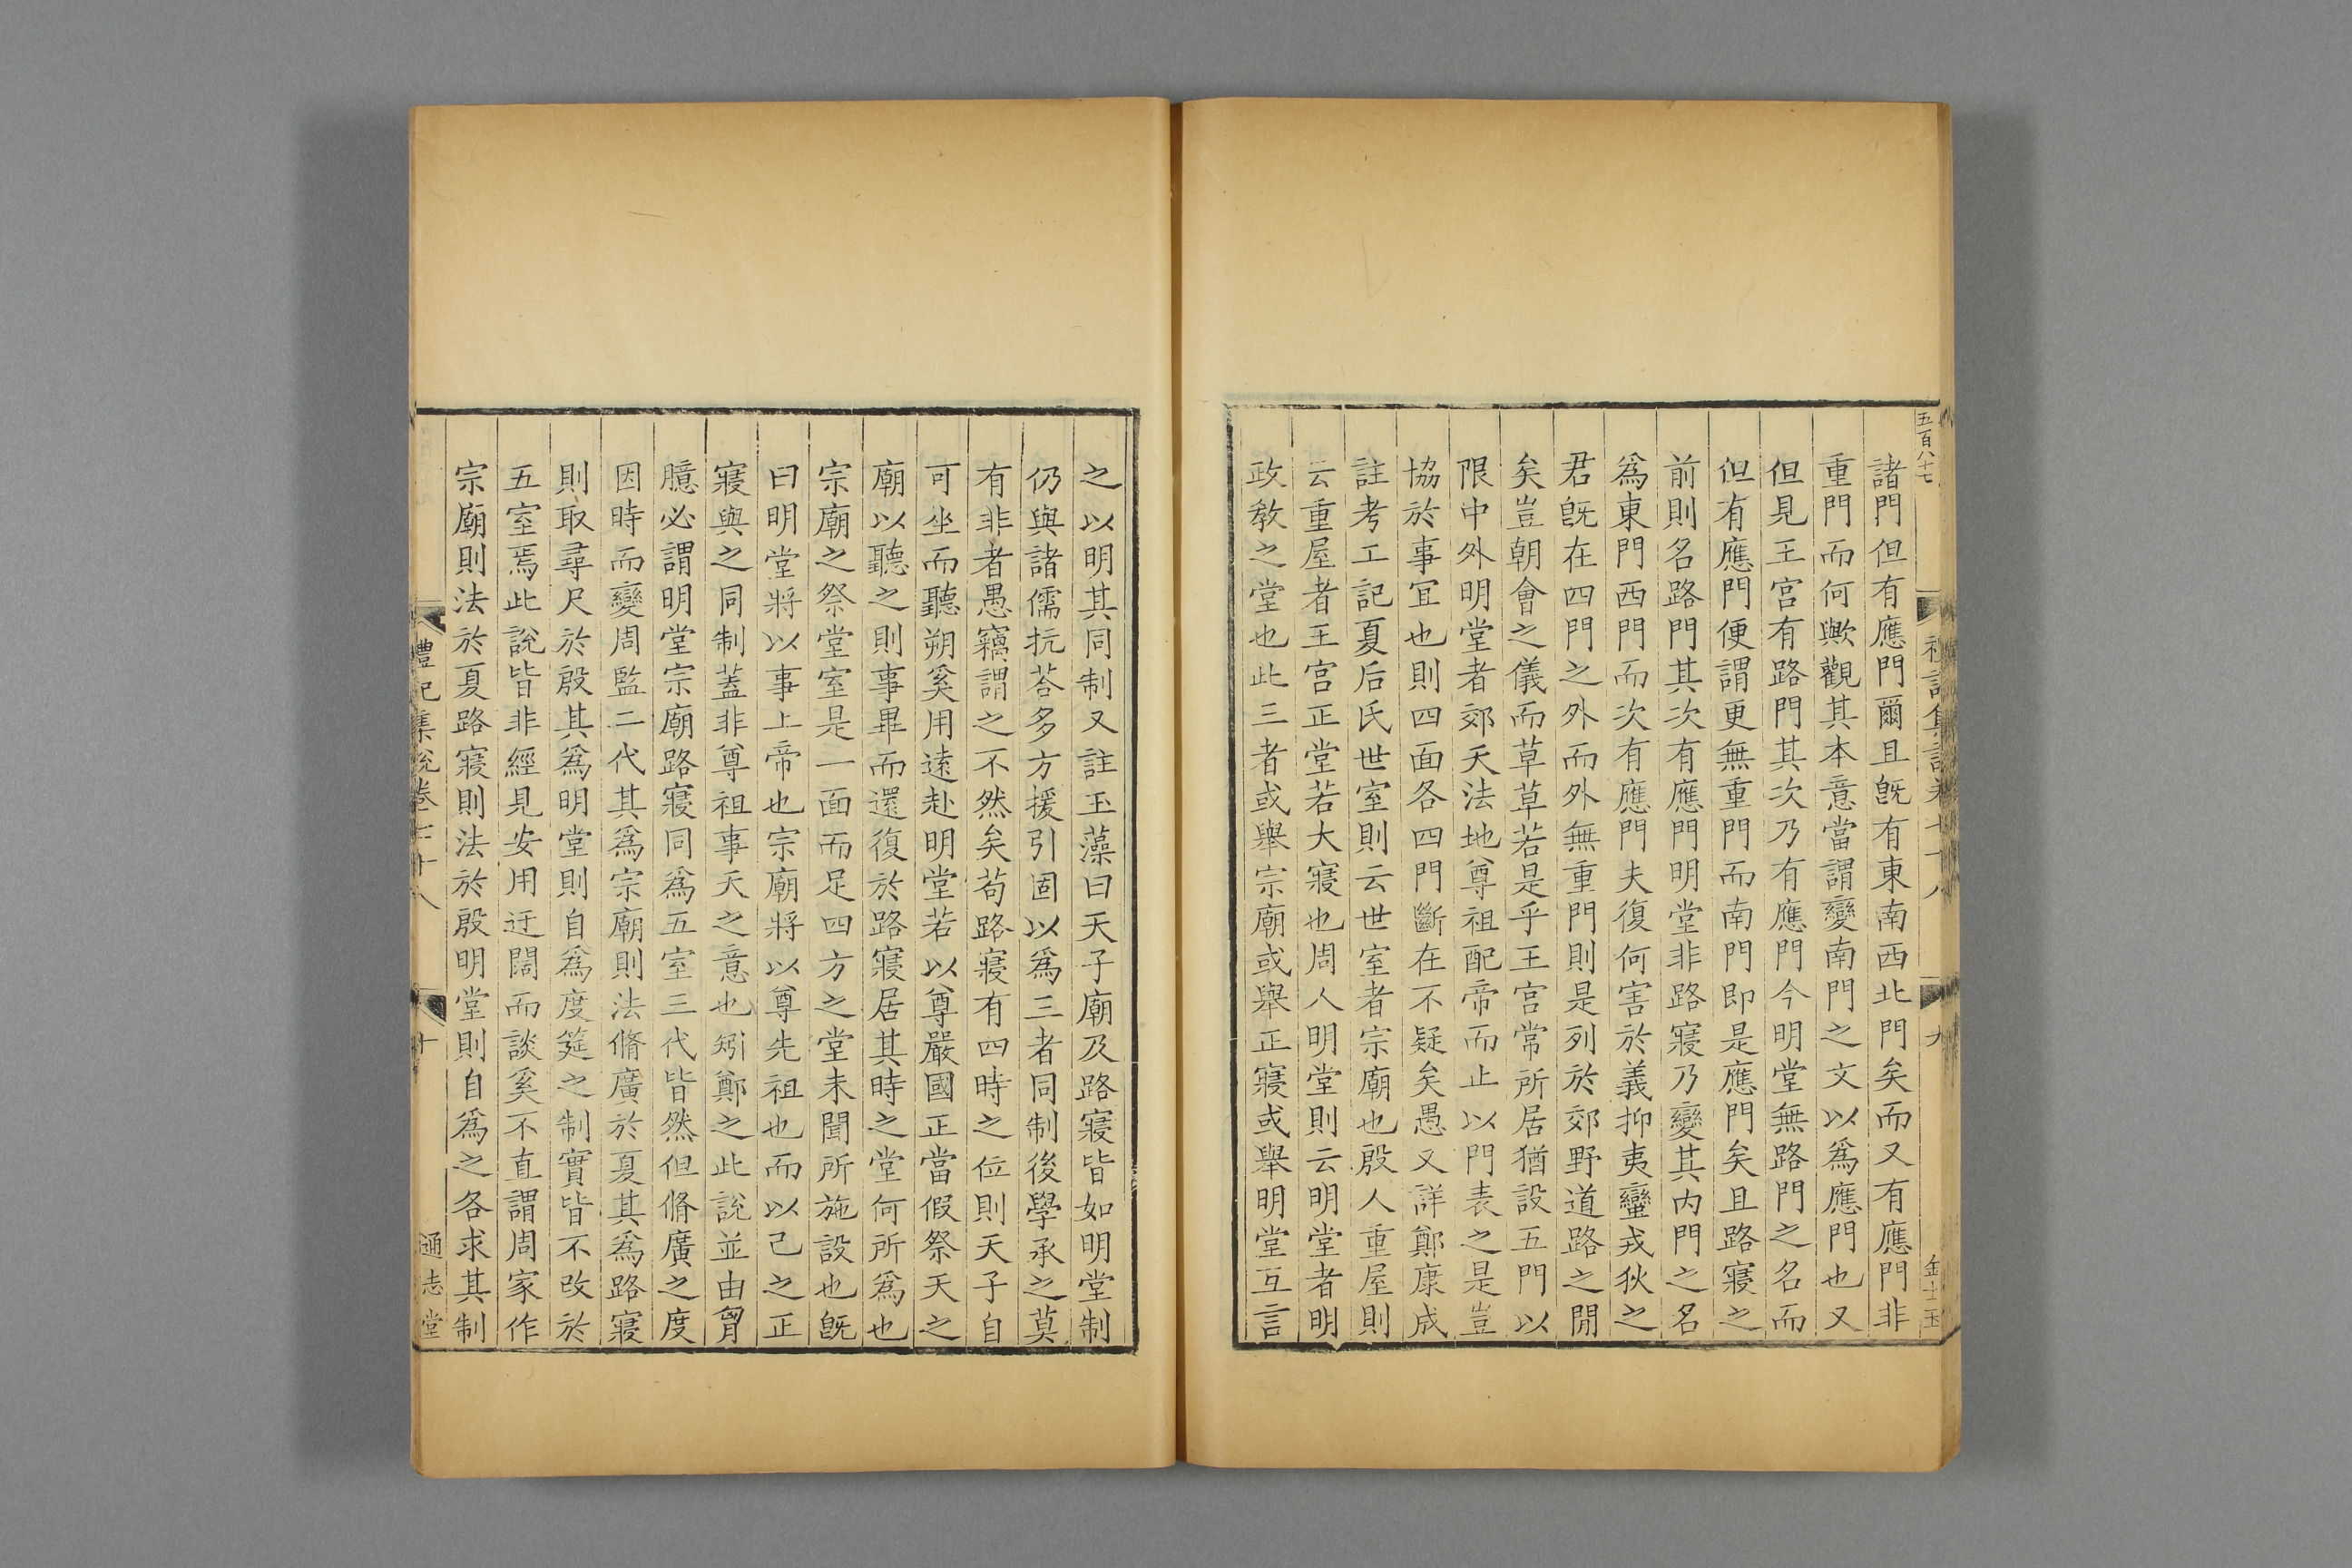 五百八十七
諸門但有應門爾且旣有東南西北門矣而又有應門非
重門而何歟觀其本意當謂變南門之文以爲應門也又
但見王宮有路門其次乃有應門今明堂無路門之名而
但有應門便謂更無重門而南門即是應門矣且路寢之
前則名路門其次有應門明堂非路寢乃變其内門之名
爲東門西門而次有應門夫復何害於義抑夷蠻戎狄之
君旣在四門之外而外無重門則是列於郊野道路之閒
矣豈朝會之儀而草草若是乎王宮常所居猶設五門以
限中外明堂者郊天法地尊祖配帝而止以門表之是豈
協於事宜也則四面各四門斷在不疑矣愚又詳鄭康成
註考工記夏后氏世室則云世室者宗廟也殷人重屋則
云重屋者王宮正堂若大寢也周人明堂則云明堂者明
政教之堂也此三者或舉宗廟或舉正寢或舉明堂互言
之以明其同制又註玉藻曰天子廟及路寢皆如明堂制
仍與諸儒抗荅多方援引固以爲三者同制後學承之莫
有非者愚竊謂之不然矣苟路寢有四時之位則天子自
可坐而聽朔奚用遠赴明堂若以尊嚴國正當假祭天之
廟以聽之則事畢而還復於路寢居其時之堂何所爲也
宗廟之祭堂室是一面而足四方之堂未聞所施設也旣
曰明堂將以事上帝也宗廟將以尊先祖也而以己之正
寢與之同制蓋非尊祖事天之意也矧鄭之此說並由胷
臆必謂明堂宗廟路寢同爲五室三代皆然但脩廣之度
因時而變周監二代其爲宗廟則法脩廣於夏其爲路寢
則取尋尺於殷其爲明堂則自爲度筵之制實皆不改於
五室焉此說皆非經見安用迂闊而談奚不直謂周家作
宗廟則法於夏路寢則法於殷明堂則自爲之各求其制
禮記集說卷七十八
十
通志堂